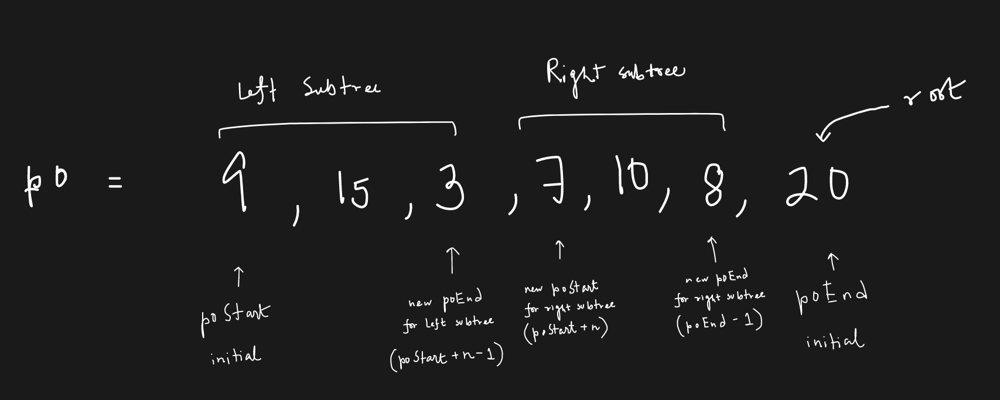 Left Subtree
Right subtree
root
po = 9, 15, 3, 7, 10, 8, 20
poStart
initial
new poEnd
for left subtree
(poStart + n - 1)
new poStart
for right subtree
(poStart + n)
new poEnd
for right subtree
(poEnd - 1)
poEnd
initial